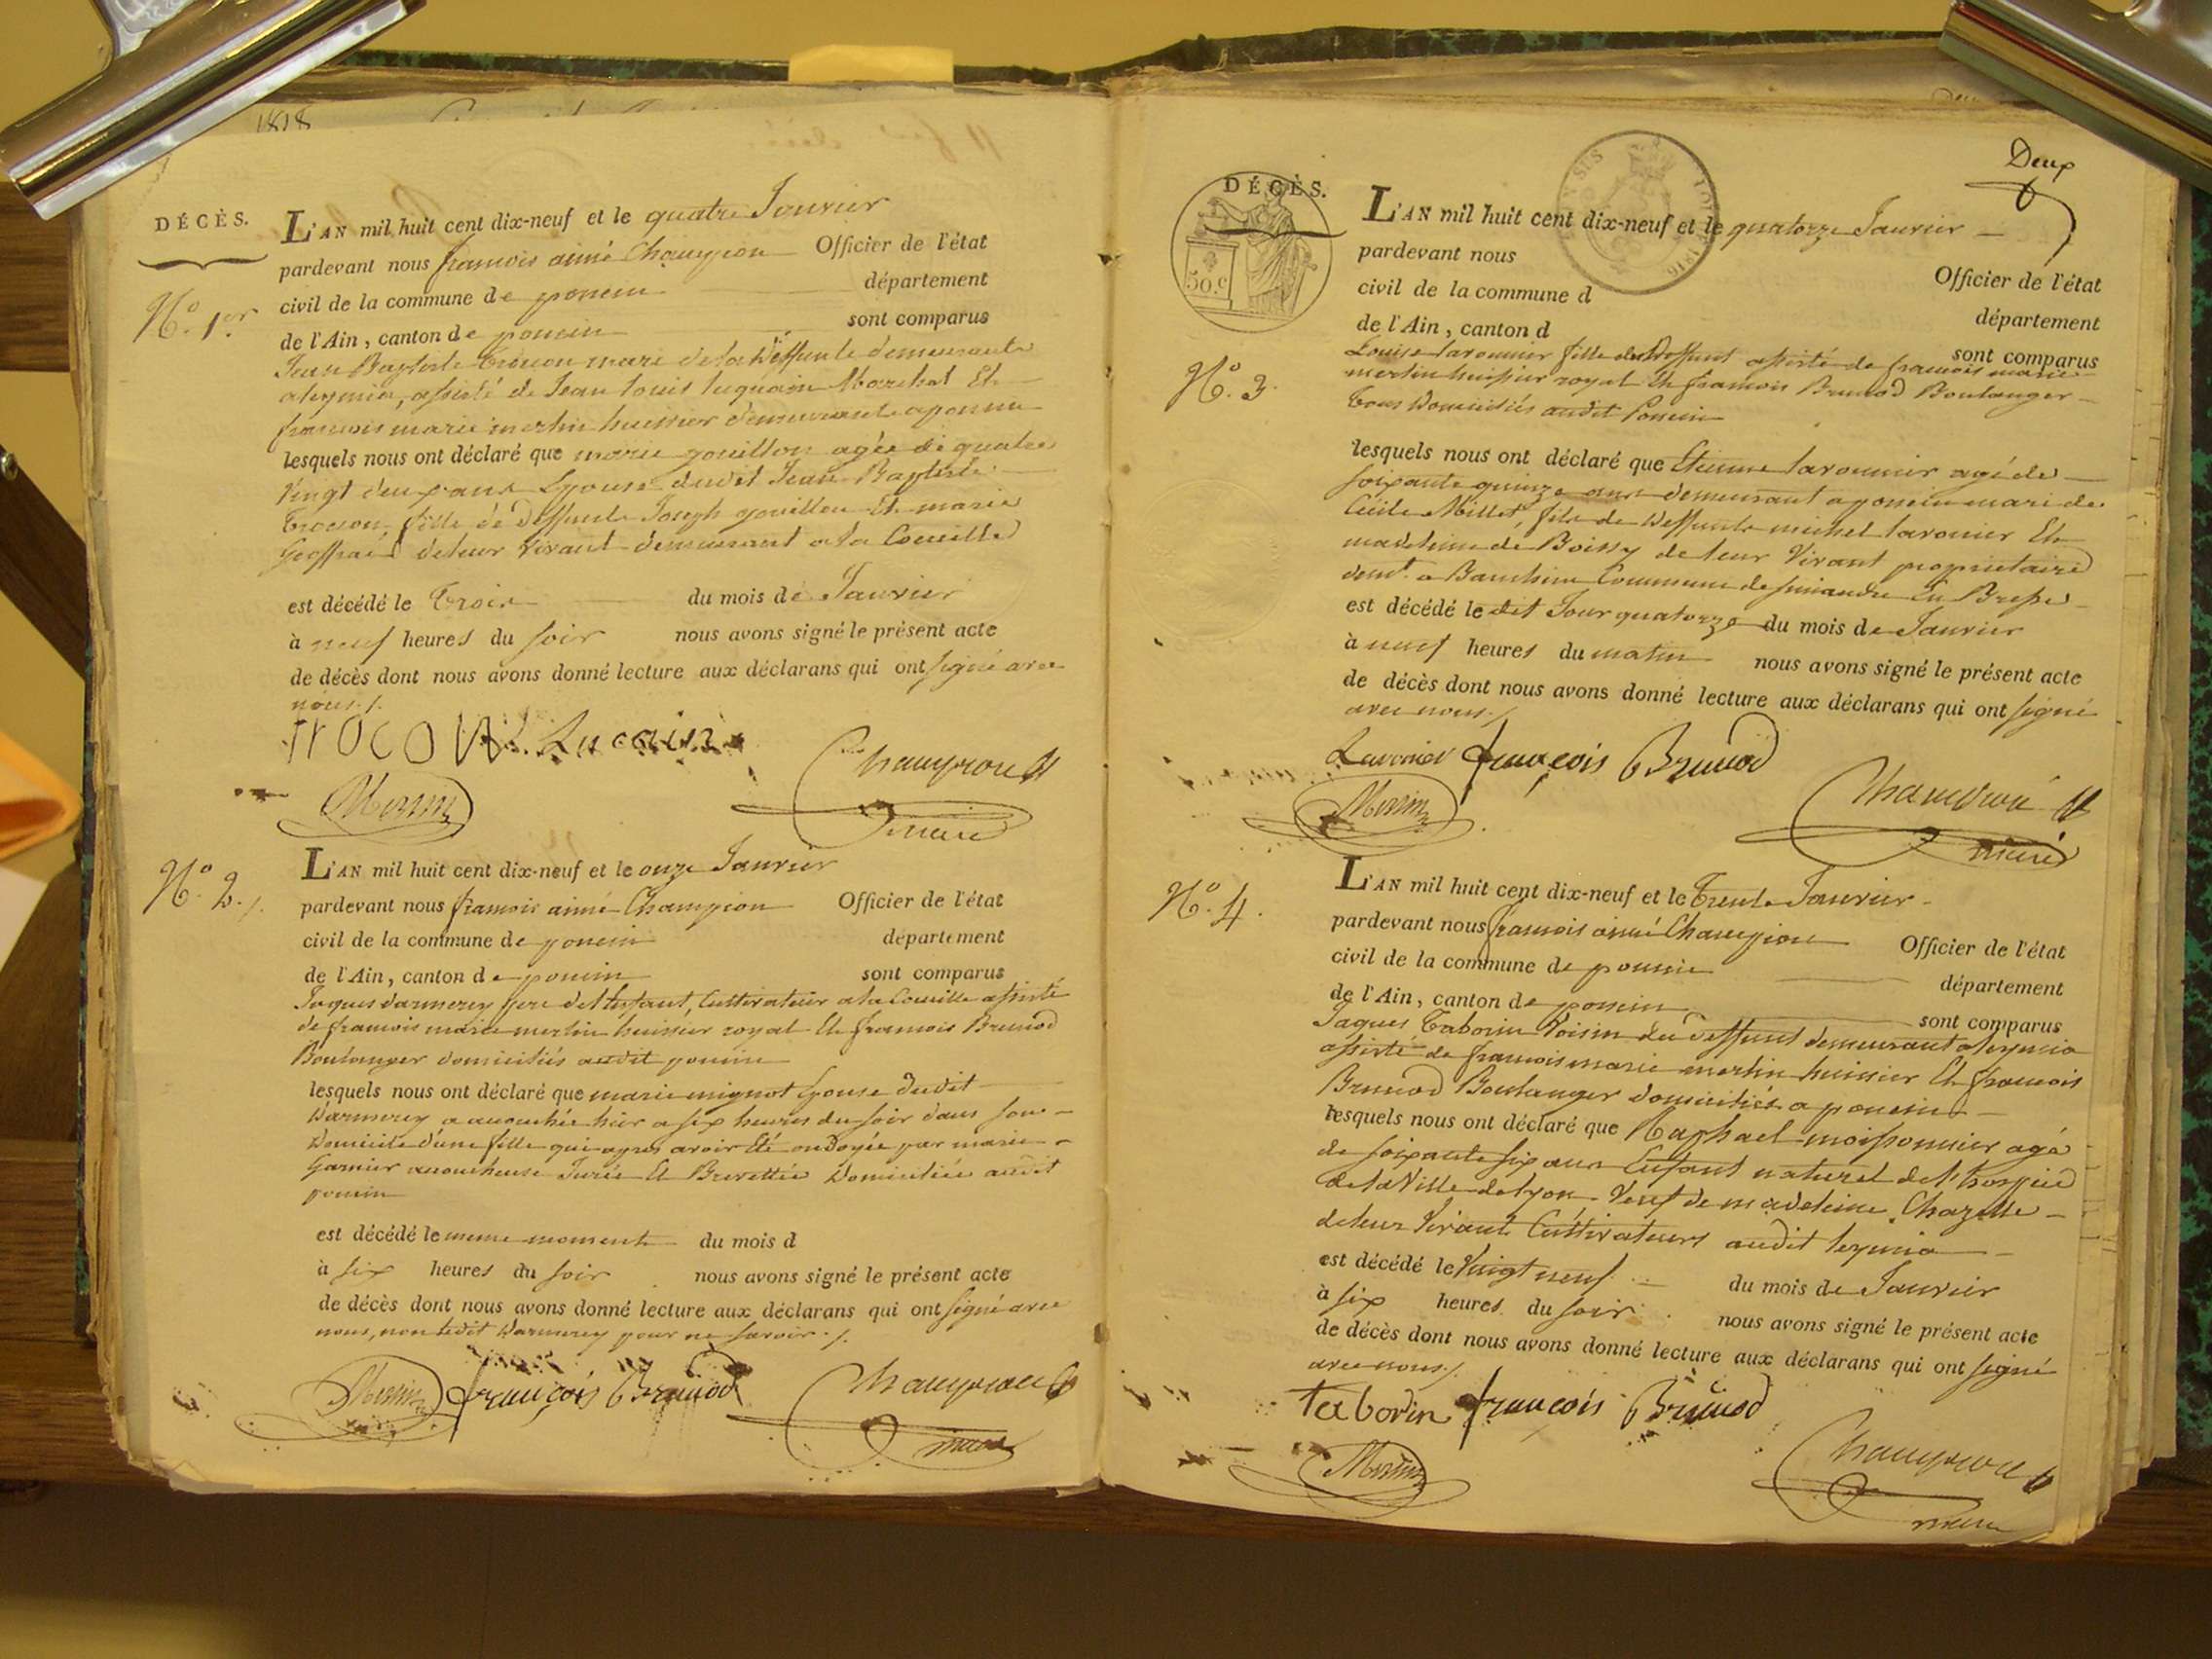 1818
DÉCÈS.
L'AN mil huit cent dix-neuf et le quatre Janvier
pardevant nous francois aimé Champion Officier de l'état
civil de la commune de poncin département
de l'Ain, canton de poncin sont comparus
N.º 1.er
Jean Baptiste trocon mari de la Deffunte demeurant
a leymia, assisté de Jean louis luquain Marechal Et
francois marie merlin huissier demeurants a poncin
lesquels nous ont déclaré que marie gouillon agée de quatre
Vingt deux ans Epouse dudit Jean Baptiste
trocon, fille de Deffunts Joseph gouillon Et marie
de leur vivant demeurant a la Coueille
est décédé le trois du mois de Janvier
à neuf heures du soir nous avons signé le présent acte
de décès dont nous avons donné lecture aux déclarans qui ont signé avec
nous ./.
trocon Lucain
Merlin Champion
maire
N.º 2./.
L'AN mil huit cent dix-neuf et le onze Janvier
pardevant nous francois aimé Champion Officier de l'état
civil de la commune de poncin département
de l'Ain, canton de poncin sont comparus
Jaques darmerey pere de l'Enfant, Cultivateur a la Coueille assisté
de francois marie merlin huissier royal Et francois Brunod
Boulanger domiciliés audit poncin
lesquels nous ont déclaré que marie mignot Epouse dudit
Darmerey a accouchée hier a six heures du soir dans son
Domicile d'une fille qui apres avoir Eté ondoyée par marie
Garnier accoucheuse Jurée Et Brevettée Domiciliée audit
poncin
est décédé le meme moment du mois d
à six heures du soir nous avons signé le présent acte
de décès dont nous avons donné lecture aux déclarans qui ont signé avec
nous, non ledit Darmerey pour ne savoir ./.
Merlin françois Brunod Champion
maire
Deux
DÉCÈS.
50.c
L'AN mil huit cent dix-neuf et le quatorze Janvier
pardevant nous Officier de l'état
civil de la commune d département
de l'Ain, canton d sont comparus
N.º 3.
Louise laronnier fille du Deffunt assisté de francois marie
merlin huissier royal Et francois Brunod Boulanger
tous Domiciliés audit Poncin
lesquels nous ont déclaré que Etienne laronnier agé de
soixante quinze ans demeurant a poncin mari de
Cécile Millet, fils de Deffunts michel laronier Et
madeleine de Boissy de leur Vivant propriétaires
demt. a Commune de En Bresse
est décédé le dit Jour quatorze du mois de Janvier
à neuf heures du matin nous avons signé le présent acte
de décès dont nous avons donné lecture aux déclarans qui ont signé
avec nous ./.
Laronier françois Brunod
Merlin Champion
maire
N.º 4.
L'AN mil huit cent dix-neuf et le trente Janvier
pardevant nous francois aimé Champion Officier de l'état
civil de la commune de poncin département
de l'Ain, canton de poncin sont comparus
Jaques taborin Voisin du deffunt demeurant a leymia
assisté de francois marie merlin huissier Et francois
Brunod Boulanger domiciliés a poncin
lesquels nous ont déclaré que Raphael moissonnier agé
de soixante six ans Enfant naturel de l'hospice
de la Ville de lyon, Veuf de madeleine Chazelle
de leur Vivant Cultivateurs audit leymia
est décédé le Vingt neuf du mois de Janvier
à six heures du soir nous avons signé le présent acte
de décès dont nous avons donné lecture aux déclarans qui ont signé
avec nous ./.
taborin françois Brunod
Merlin Champion
maire